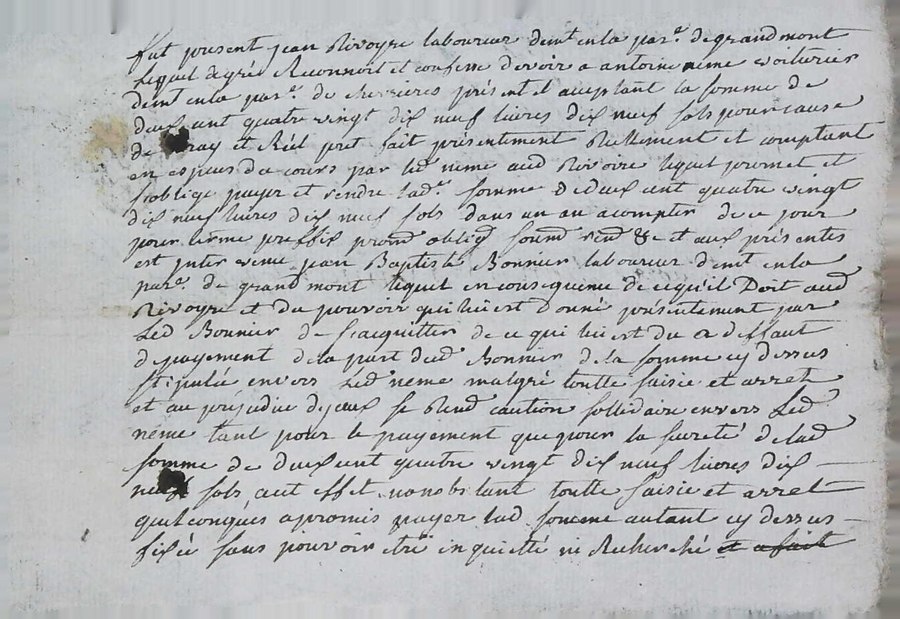 fut present jean Rivoyre laboureur demt en la parr. de grandmont
Lequel de gréé Reconnoit et confesse devoir a antoine neme voiturier
demt en la parr. de chevrieres présent et aceptant la somme de
deux cent quatre vingt dix neuf livres dix neuf sols pour cause
de vray et Réél pret fait présentement Réellement et comptant
en especes de cours par led neme aud Rivoire lequel promet et
s'oblige payer et rendre lade somme de deux cent quatre vingt
dix neuf livres dix neuf sols dans un an a compter de ce jour
pour terme preffix prom oblig soum rend &c et aux présentes
est jntervenu jean Baptiste Bonnier laboureur demt en la
parr. de grandmont lequel en consequence de ce qu'il Doit aud
Rivoyre et du pouvoir qui lui est Donné présentement par
Led Bonnier de s'acquitter de ce qui lui est du a deffaut
de payement de la part dud Bonnier de la somme cy dessus
stipulée envers Led neme malgré toutte saisie et arret
et au préjudice d'jceux se Rend caution sollidaire envers Led
néme tant pour le payement que pour la sureté de lad
somme de deux cent quatre vingt dix neuf livres dix
neuf sols, a cet effet nonobstant toutte saisie et arret
quelconques a promis payer lad somme autant cy dessus
fixée sans pouvoir etre inquietté ni Recherché et a fait